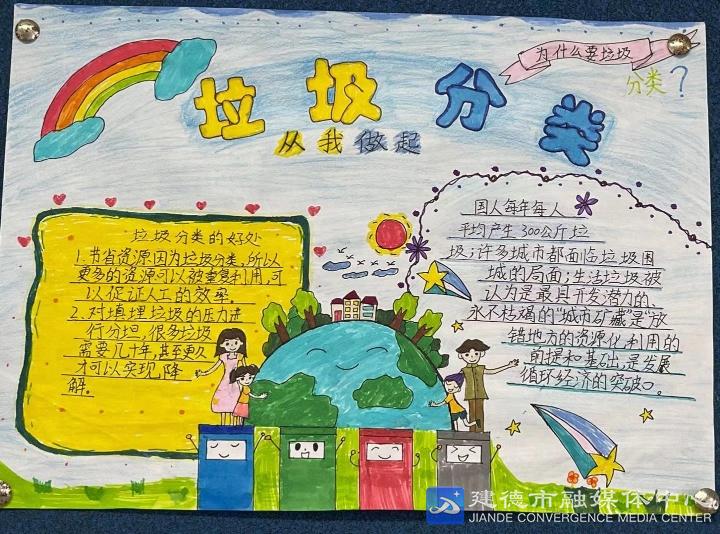 为什么要垃圾
分类？
垃圾分类
从我做起
垃圾分类的好处
1.节省资源因为垃圾分类,所以
更多的资源可以被重复利用,可
以促证人工的效率
2.对填埋垃圾的压力进
行分坦,很多垃圾
需要几十年,甚至更久
才可以实现,降
解。
国人每年每人
平均产生300公斤垃
圾;许多城市都面临垃圾围
城的局面;生活垃圾被
认为是最具开发潜力的、
永不枯竭的"城市矿藏"是"放
错地方的资源化利用的
前提和基础,是发展
循环经济的突破口。
建德市融媒体中心
JIANDE CONVERGENCE MEDIA CENTER